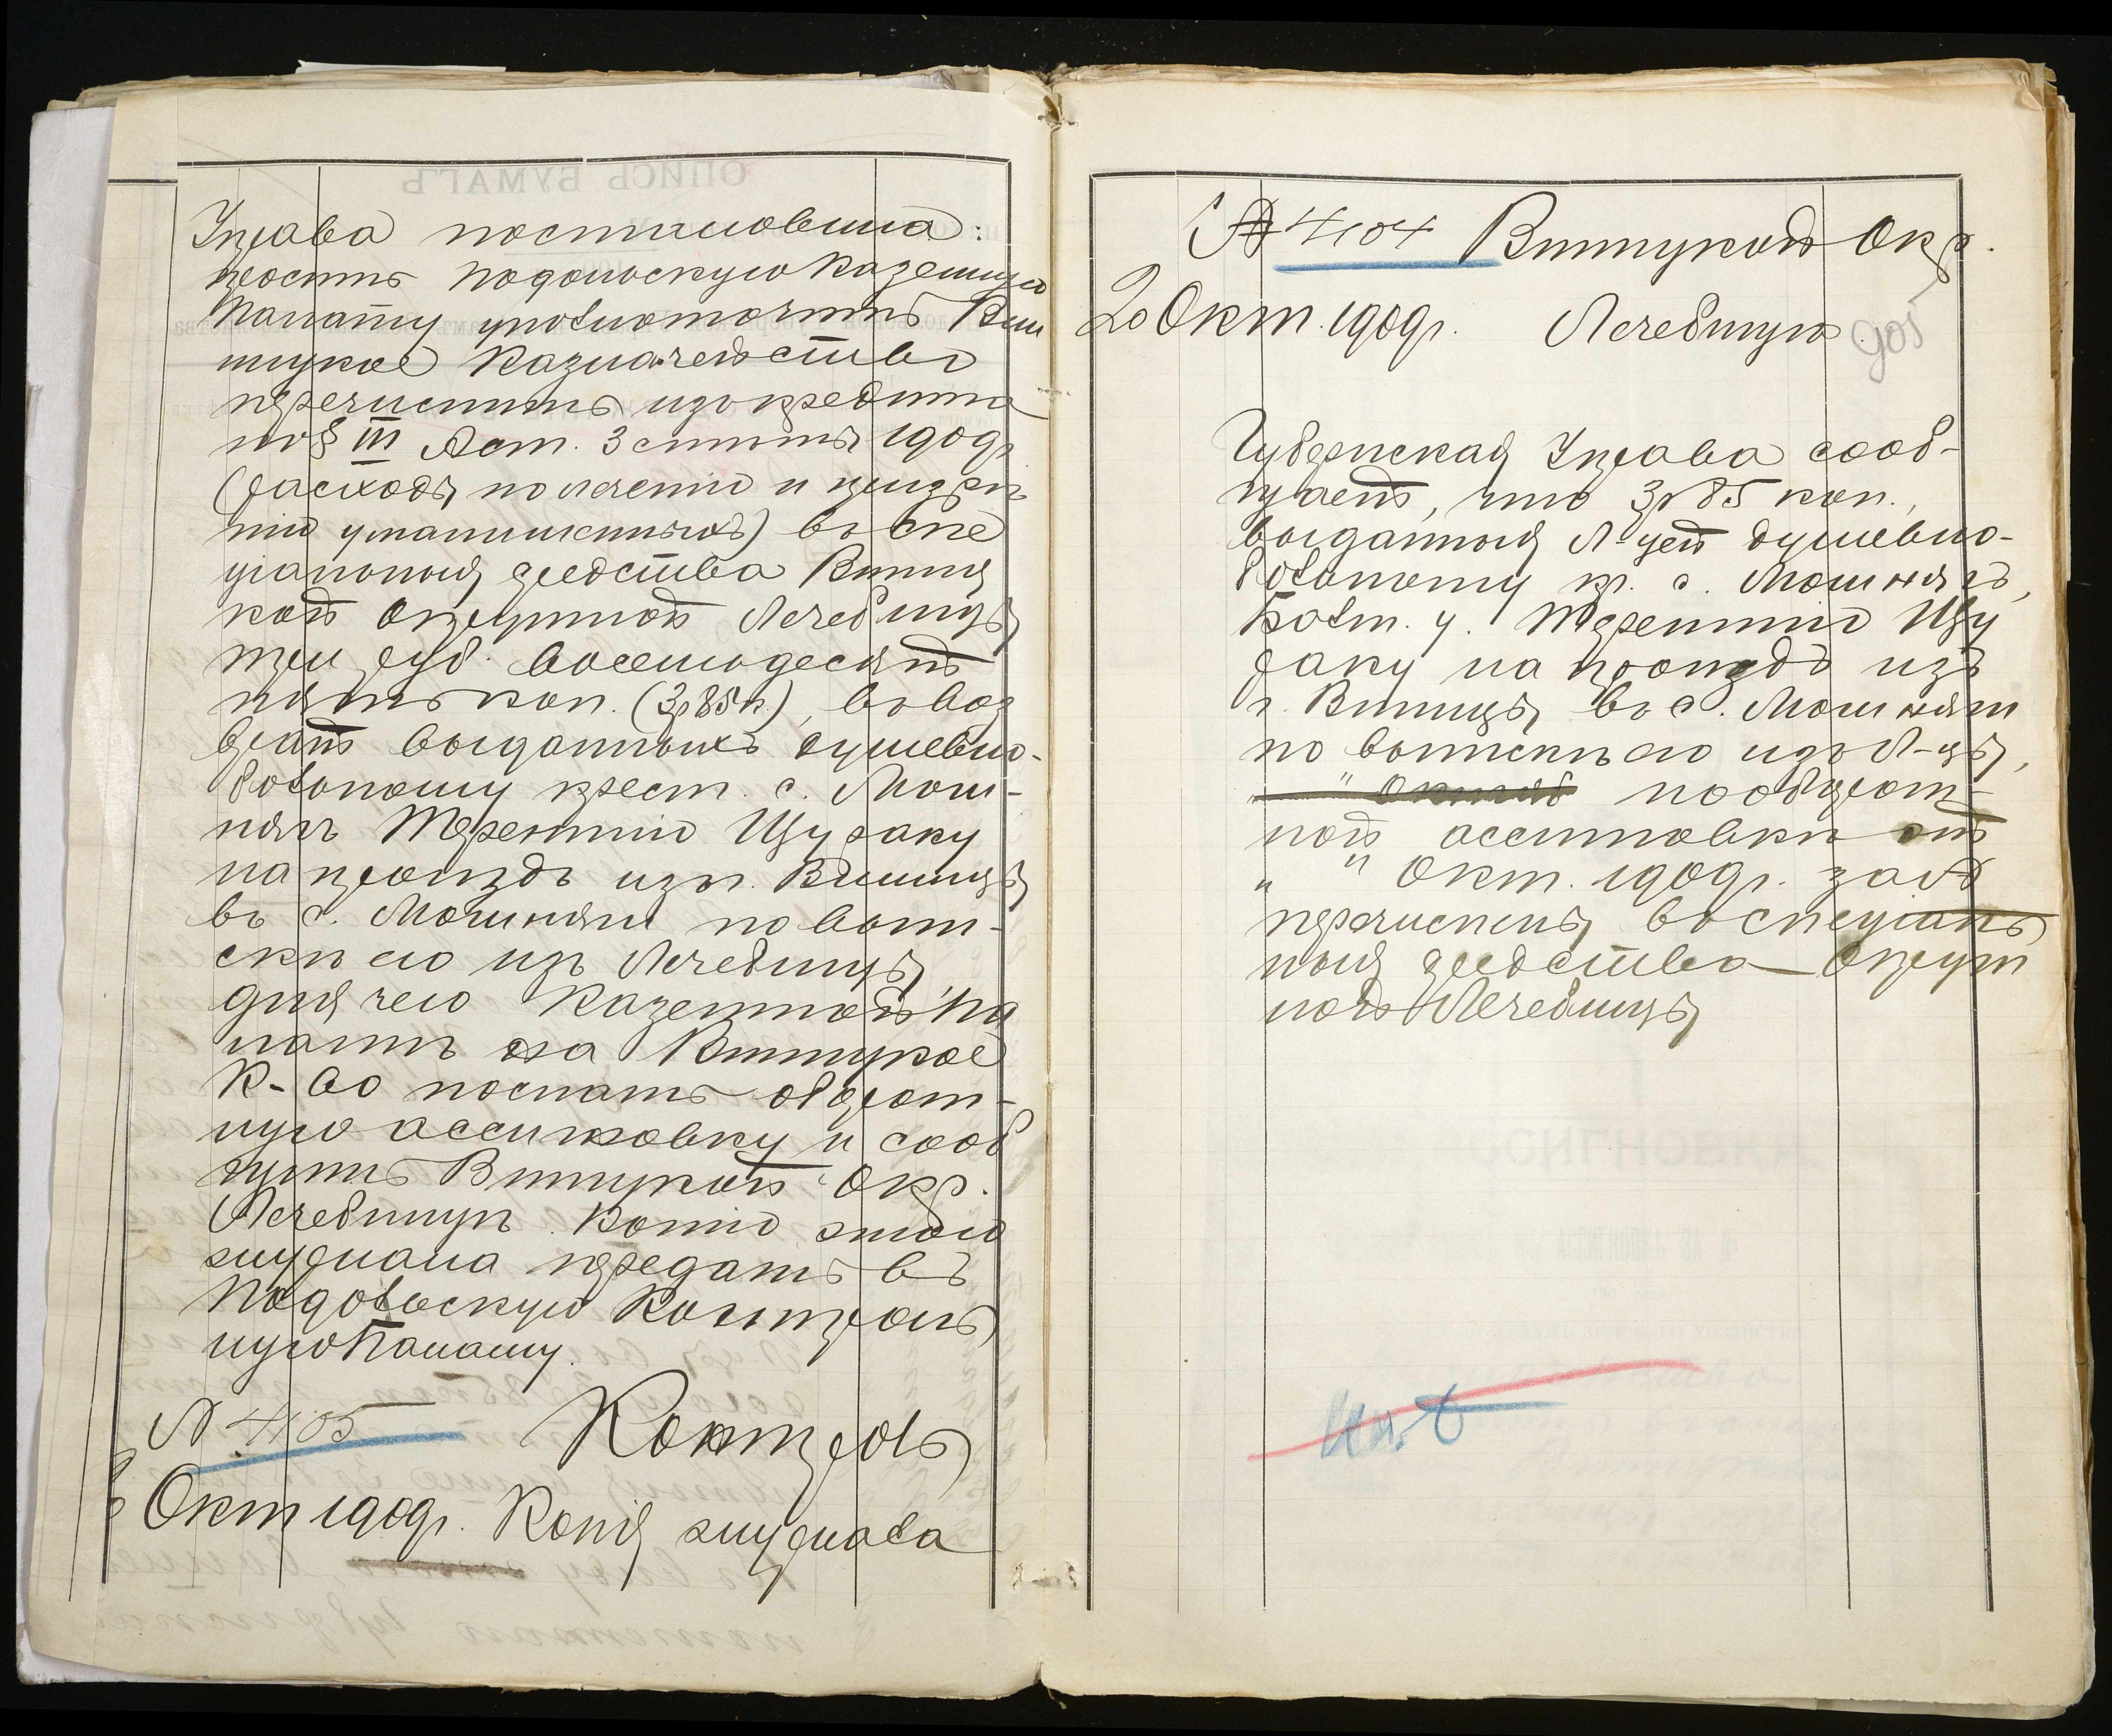 Управа постановила:
просить Подольскую Казенную
Палату уполномочить Вин
ницкое Казначейство
перечислить изъ кредита
по § III Лст. 3 смѣты 1909 г.
(расходы по леченію и призрѣ
нію умалишенныхъ) въ спе
ціальныя средства Винниц
кой Окружной Лечебницы
три руб. восемьдесятъ
пять коп. (3р 85к), въ воз
вратъ выданныхъ душевно-
больному крест. с. Мош-
нягъ Терентію Щураку
на проѣздъ изъ г. Винницы
въ с. Мошняги по выпи-
скѣ его изъ Лечебницы,
для чего Казенной Па
латѣ на Винницкое
К-во послать оборот-
ную ассигновку и сооб
щить Винницкой Окр.
Лечебницѣ. Копію этого
журнала передать въ
Подольскую Контроль
ную Палату.
№ 4105 Контроль
20 Окт 1909 г. Копія журнала
№ 4104 Винницкой Окр.
20 Окт. 1909 г. Лечебницѣ
905
Губернская Управа сооб-
щаетъ, что 3р 85 коп.,
выданныя Л-цей душевно-
больному кр. с. Мошнягъ,
Балт. у. Терентію Щу
раку на проѣздъ изъ
г. Винницы въ с. Мошняги
по выпискѣ его изъ Л-цы,
по оборот-
ной ассигновкѣ отъ
" " Окт. 1909 г. за №
перечислены въ спеціаль
ныя средства Окруж
ной Лечебницы